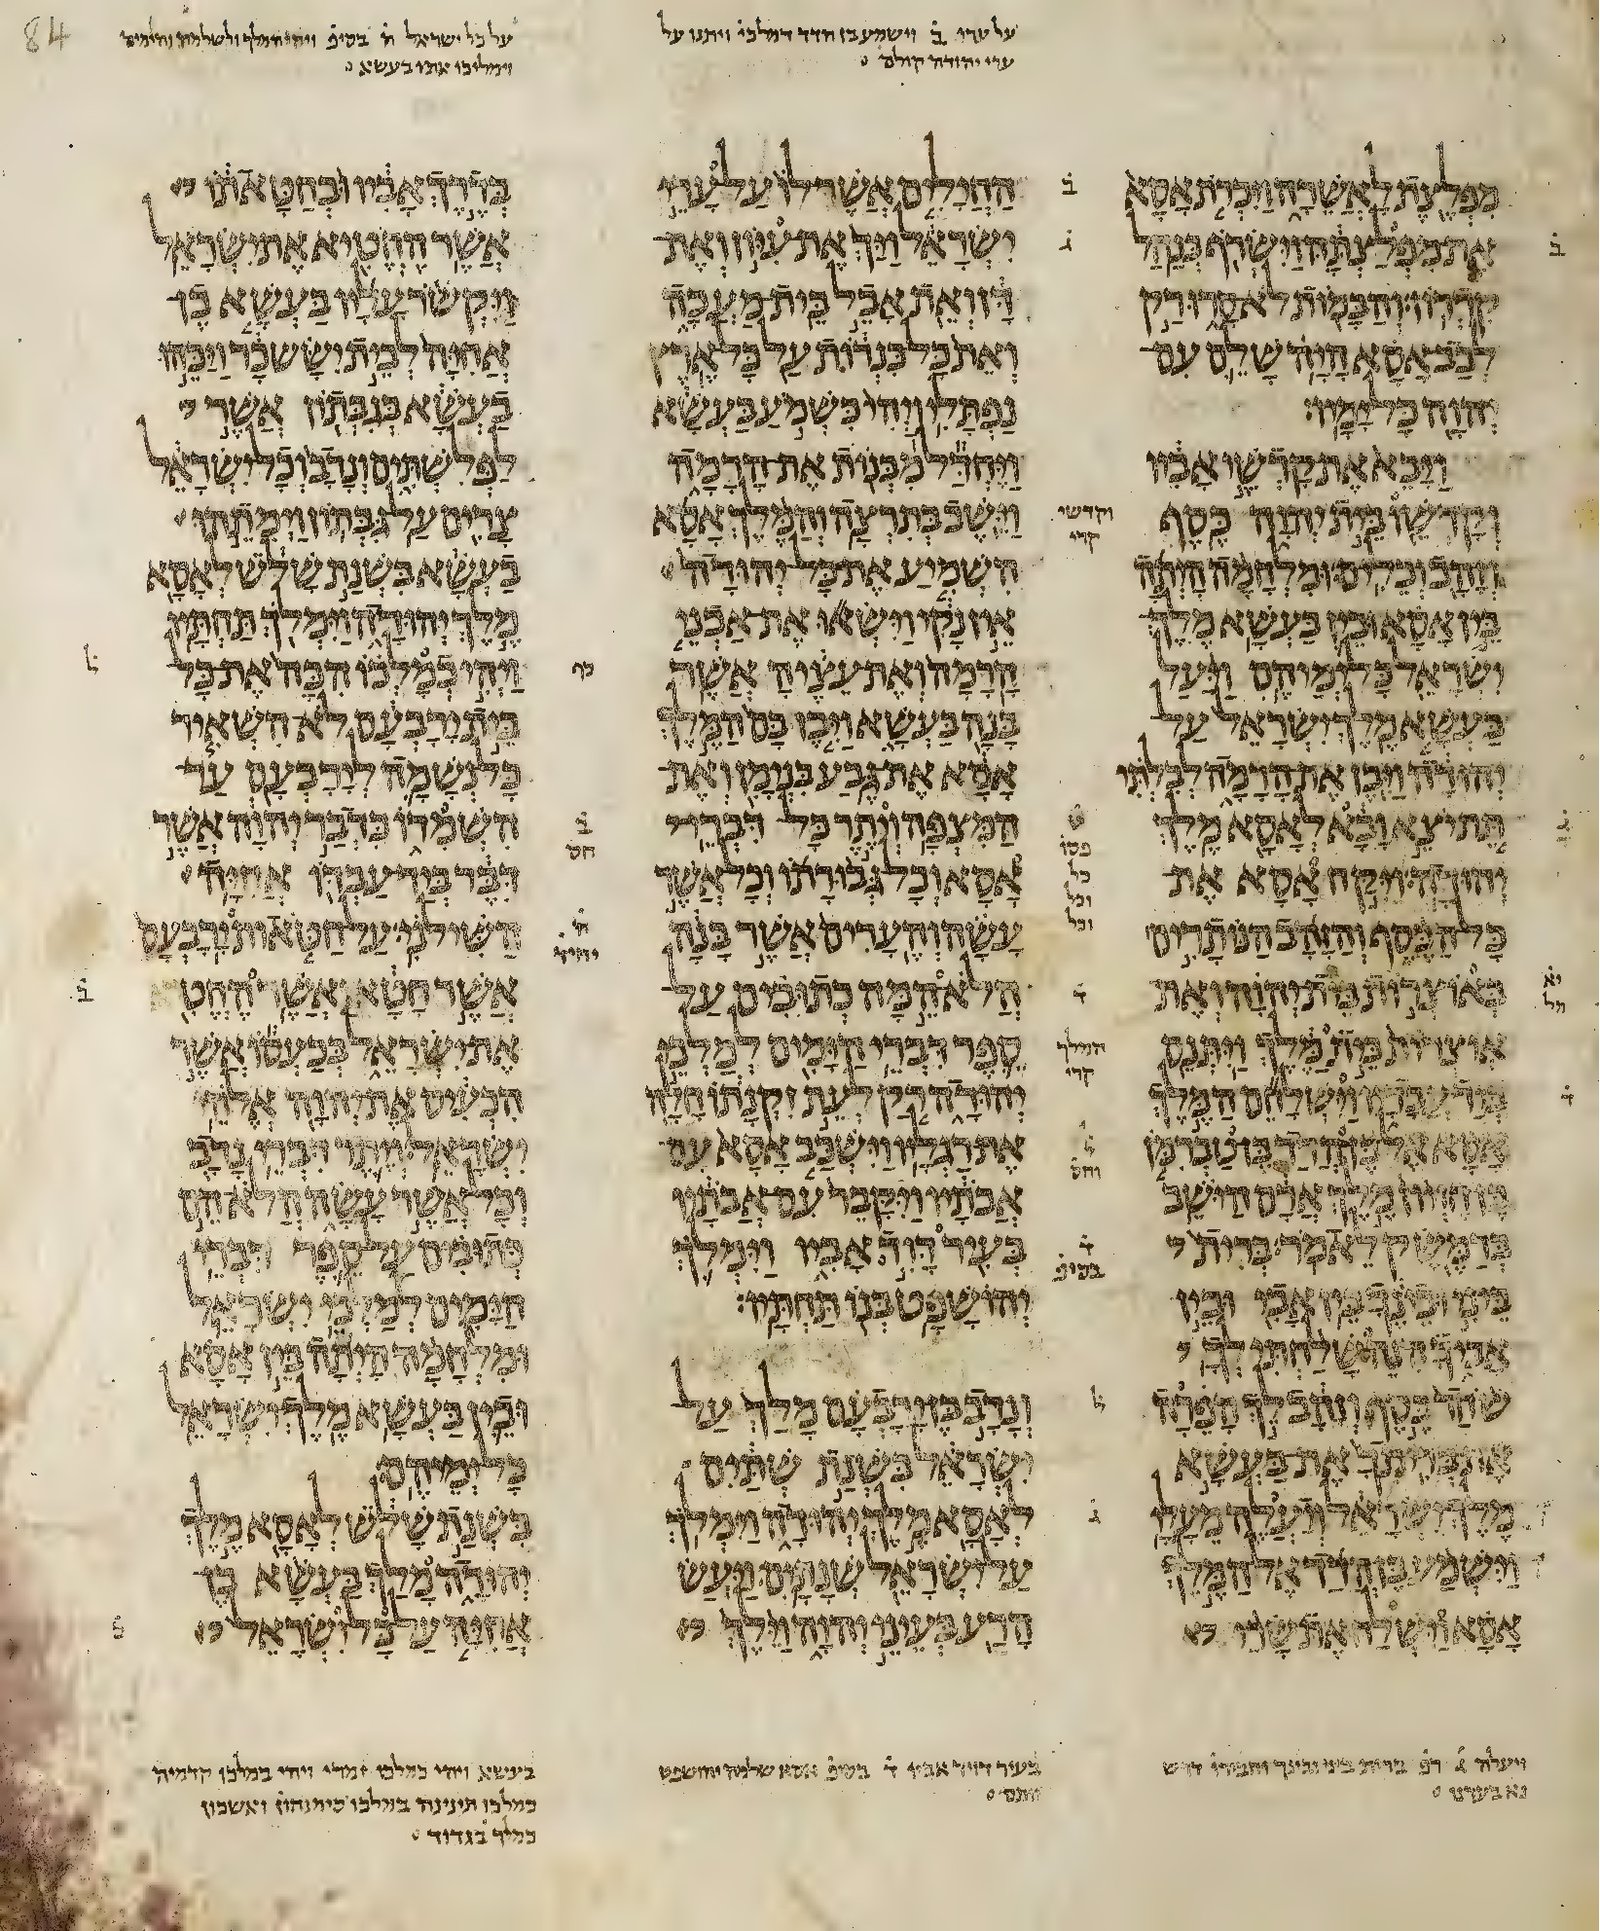 על ערי ב וישמע בן הדד דמלכי ויתנו על
ערי יהודה קולם
על כל ישראל ח בסיפ ויהי המלך ולשלמה והימים
וימליכו אתו בעשא
מפלצת לאשרה ויכרת אסא
את מפלצתה וישרף בנחל
קדרון והבמות לא סרו רק
לבב אסא היה שלם עם
יהוה כל ימיו׃
ויבא את קדשי אביו
וקדשו בית יהוה כסף
וזהב וכלים ומלחמה היתה
בין אסא ובין בעשא מלך
ישראל כל ימיהם ויעל
בעשא מלך ישראל על
יהודה ויבן את הרמה לבלתי
תת יצא ובא לאסא מלך
יהודה ויקח אסא את
כל הכסף והזהב הנותרים
באוצרות בית יהוה ואת
אוצרות בית מלך ויתנם
ביד עבדיו וישלחם המלך
אסא אל בן הדד בן טברמן
בן חזיון מלך ארם הישב
בדמשק לאמר ברית
ביני ובינך בין אבי ובין
אביך הנה שלחתי לך
שחד כסף וזהב לך הפרה
את בריתך את בעשא
מלך ישראל ויעלה מעלי
וישמע בן הדד אל המלך
אסא וישלח את שרי
וקדשי
קרי
המלך
קרי
החילים אשר לו על ערי
ישראל ויך את עיון ואת
דן ואת אבל בית מעכה
ואת כל כנרות על כל ארץ
נפתלי ויהי כשמע בעשא
ויחדל מבנות את הרמה
וישב בתרצה והמלך אסא
השמיע את כל יהודה
אין נקי וישאו את אבני
הרמה ואת עציה אשר
בנה בעשא ויבן בם המלך
אסא את גבע בנימן ואת
המצפה ויתר כל דברי
אסא וכל גבורתו וכל אשר
עשה והערים אשר בנה
הלא המה כתובים על
ספר דברי הימים למלכי
יהודה רק לעת זקנתו חלה
את רגליו וישכב אסא עם
אבתיו ויקבר עם אבתיו
בעיר דויד אביו וימלך
יהושפט בנו תחתיו׃
ונדב בן ירבעם מלך על
ישראל בשנת שתים
לאסא מלך יהודה וימלך
על ישראל שנתים ויעש
הרע בעיני יהוה וילך
בדרך אביו ובחטאתו
אשר החטיא את ישראל
ויקשר עליו בעשא בן
אחיה לבית יששכר ויכהו
בעשא בגבתון אשר
לפלשתים ונדב וכל ישראל
צרים על גבתון וימתהו
בעשא בשנת שלש לאסא
מלך יהודה וימלך תחתיו
ויהי כמלכו הכה את כל
בית ירבעם לא השאיר
כל נשמה לירבעם עד
השמדו כדבר יהוה אשר
דבר ביד עבדו אחיה
השילני על חטאות ירבעם
אשר חטא ואשר החטיא
את ישראל בכעסו אשר
הכעיס את יהוה אלהי
ישראל ויתר דברי נדב
וכל אשר עשה הלא הם
כתובים על ספר דברי
הימים למלכי ישראל
ומלחמה היתה בין אסא
ובין בעשא מלך ישראל
כל ימיהם
בשנת שלש לאסא מלך
יהודה מלך בעשא בן
אחיה על כל ישראל
ויעלה ג רפ ברית ביני ובינך
בעיר דויד אביו ד בסיפ אסא שלמה יהושפט
בעשא ויהי כמלכו זמרי ויהי במלכו קדמיה